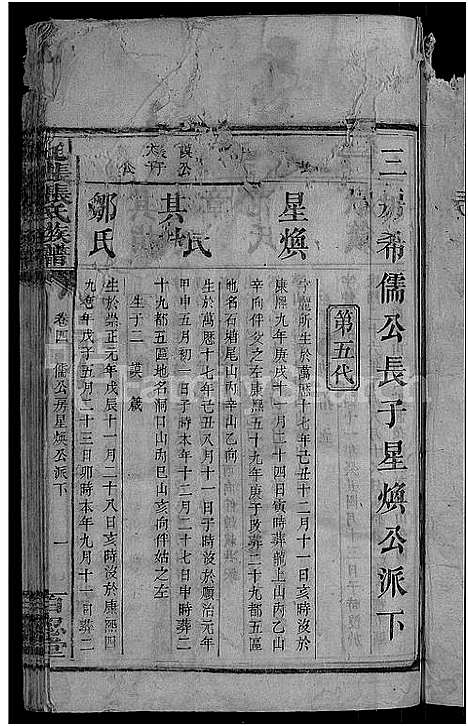 三 希儒公長子星煥公派下
第五代
星煥
字 所生於萬曆十七年乙丑十二月十一日亥時沒於
康熙九年庚戌十一月二十四日寅時葬龍上山丙乙山
辛向伴父之左康熙五十九年庚子改葬二十九都五區
地名石牯尾山丙辛山乙向
氏
生於萬曆十七年己丑八月十一日子時沒於順治元年
甲申五月初一日子時本年十二月二十七日申時葬二
十九都五區地名洞口山丙巳山亥向伴姑之左
生子二
其
鄒氏
生於崇正元年戊辰十一月二十八日亥時沒於康熙四
九 年戊子五月二十三日卯時本年九月十一日葬二
張氏族譜
卷四
儒公房星煥公派下
一
百忍堂